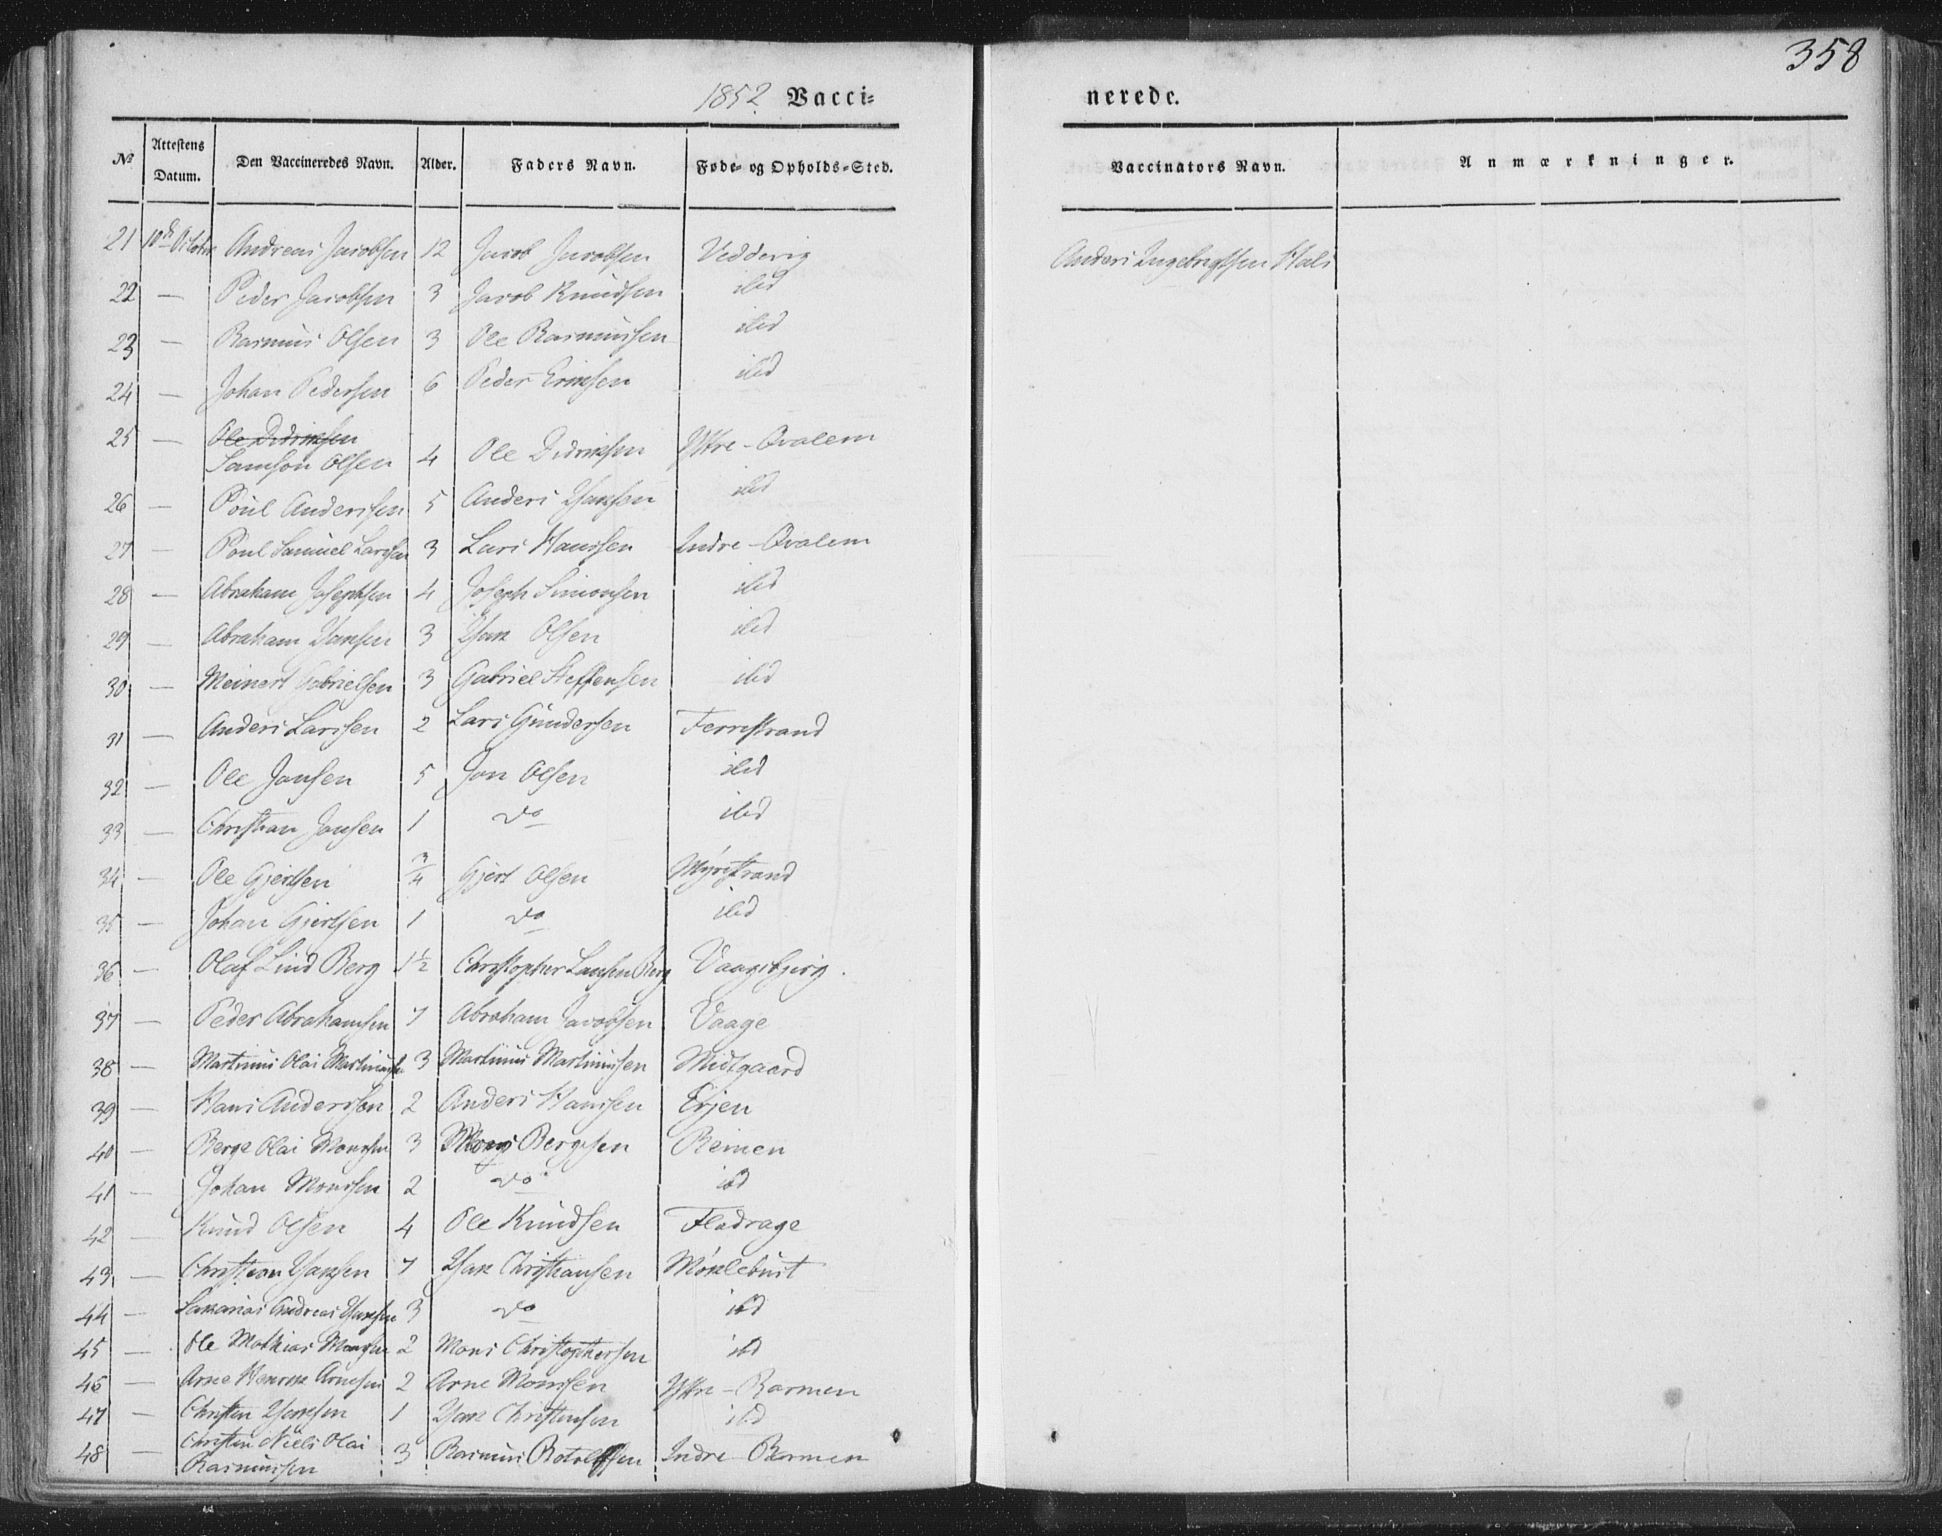 358
1852 Vacci= nerede.
No Attestens Datum. Den Vaccineredes Navn. Alder. Faders Navn. Føde- og Opholds-Sted. Vaccinators Navn. Anmærkninger.
21 10de October Andreas Jacobsen 12 Jacob Jacobsen Vedderig Anders Ingebrigtsen Hals
22 — Peder Jacobsen 3 Jacob Knudsen ibid
23 — Rasmus Olsen 3 Ole Rasmussen ibid
24 — Johan Pedersen 6 Peder Eriksen ibid
25 — Ole Didriksen
Samson Olsen 4 Ole Didriksen Ystre-Qvalem
26 — Poul Andersen 5 Anders Isaksen ibid
27 — Poul Samuel Larssen 3 Lars Hanssen Indre-Qvalem
28 — Abraham Josephsen 4 Joseph Simonsen ibid
29 — Abraham Isaksen 3 Isak Olsen ibid
30 — Meinert Gabrielsen 3 Gabriel Steffensen ibid
31 — Anders Larssen 2 Lars Gundersen Ferrestrand
32 — Ole Jonsen 5 Jon Olsen ibid
33 — Christian Jonsen 1 do ibid
34 — Ole Gjertsen 3/4 Gjert Olsen Myrestrand
35 — Johan Gjertsen 1 do ibid
36 — Olaf Lind Berg 1 1/2 Christopher Laussen Berg Vaagsbjerg.
37 — Peder Abrahamsen 7 Abraham Jacobsen Vaage
38 — Martinus Olai Martinussen 3 Martinus Martinussen Midtgaard
39 — Hans Anderssen 2 Anders Hanssen Erjen
40 — Berge Olai Monssen 3 Mons Bergesen Reimen
41 — Johan Monssen 2 do ibd
42 — Knud Olsen 4 Ole Knudsen Fladrage
43 — Christian Isaksen 7 Isak Christiansen Møklebust
44 — Sakarias Andreas Isaksen 3 do ibd
45 — Ole Mathias Monssen 2 Mons Christophersen ibd
46 — Arne Henrik Arnesen 2 Arne Monssen Ystre-Barmen
47 — Christen Isaksen 1 Isak Christensen ibd
48 — Christen Niels Olai
Rasmussen 3 Rasmus Rotolfsen Indre-Barmen